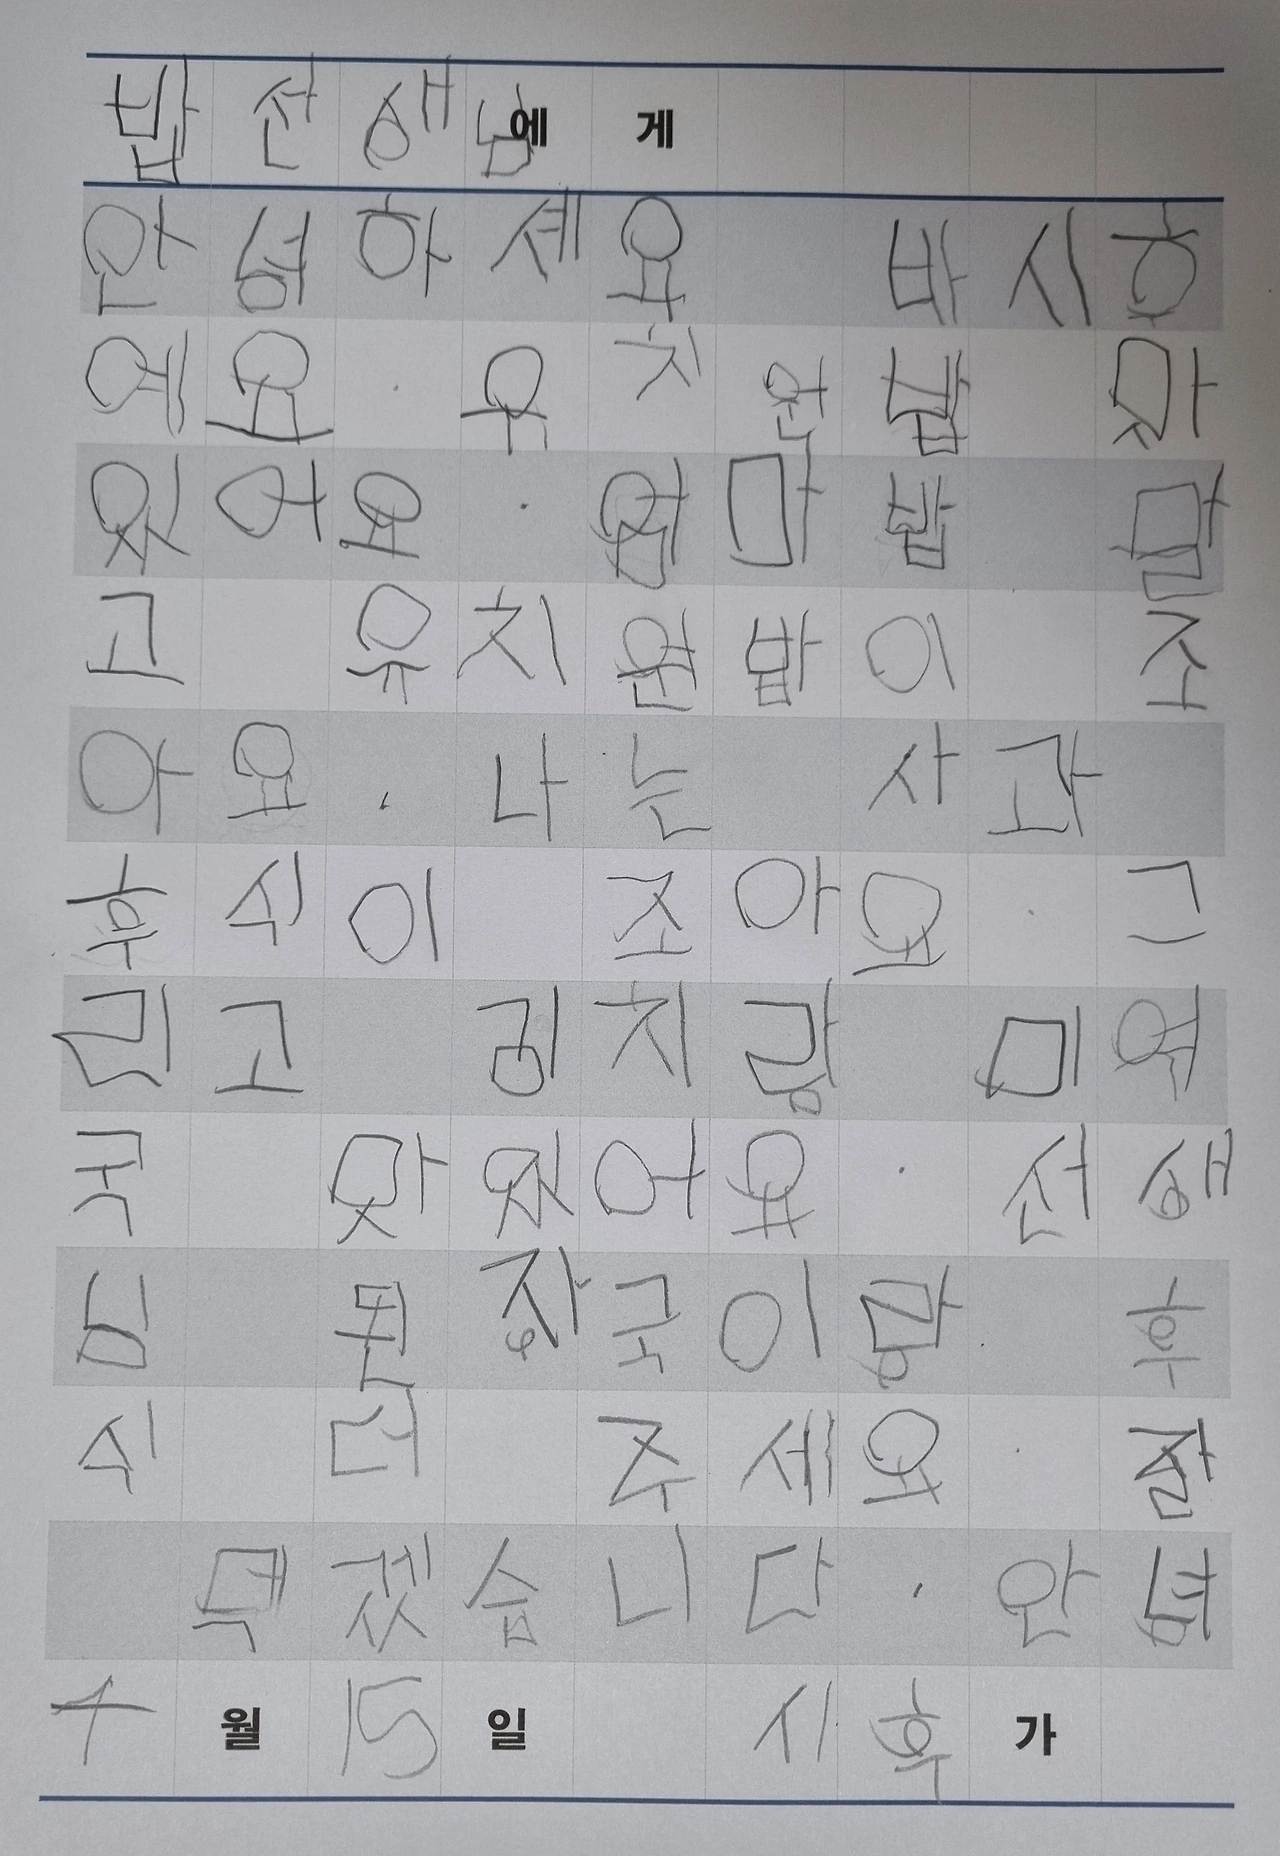 밥선생님에게
안녕하세요 박시후
예요. 유치원 맛
있어요. 엄마밥 말
고 유치원밥이 조
아요. 나는 사과
후식이 조아요. 그
리고 김치랑 미역
국 맛있어요. 선생
님 된장국이랑 후
식 더 주세요. 잘
먹겠습니다. 안녕
4월 15일 시후가